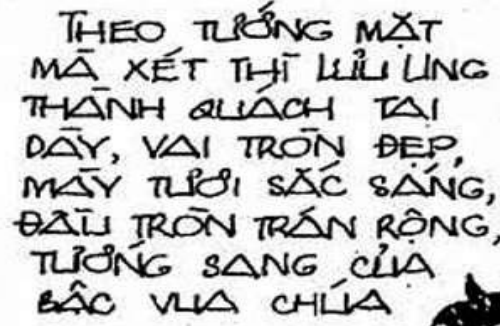 THEO TƯỚNG MẶT
MÀ XÉT THÌ LƯU UNG
THÀNH QUÁCH TAI
DÀY, VAI TRÒN ĐẸP,
MÀY TƯƠI SẮC SÁNG,
ĐẦU TRÒN TRÁN RỘNG,
TƯỚNG SANG CỦA
BẬC VUA CHÚA